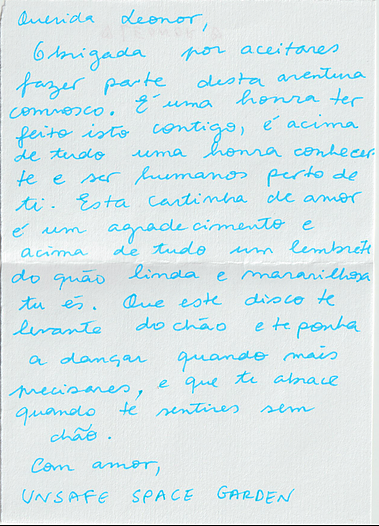 Querida Leonor,
Obrigada por aceitares
fazer parte desta aventura
connosco. É uma honra ter
feito isto contigo, é acima
de tudo uma honra conhecer-
te e ser humanos perto de
ti. Esta cartinha de amor
é um agradecimento e
acima de tudo um lembrete
do quão linda e maravilhosa
tu és. Que este disco te
levante do chão e te ponha
a dançar quando mais
precisares, e que te abrace
quando te sentires sem
chão.
Com amor,
UNSAFE SPACE GARDEN